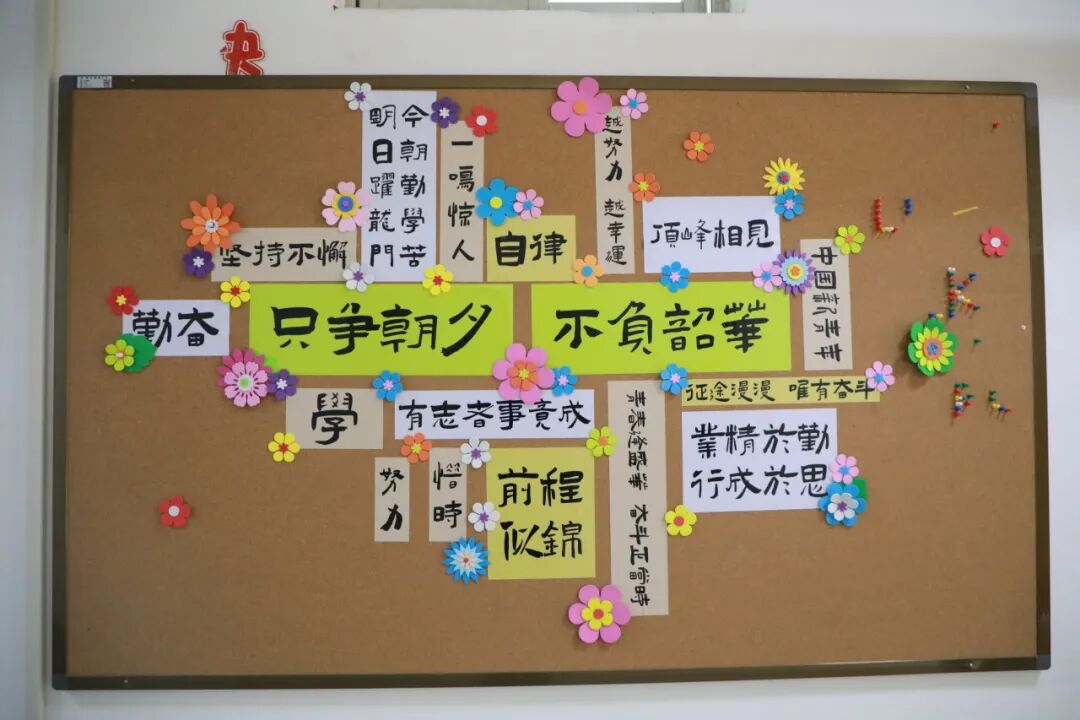 今朝勤學苦
明日躍龍門
一鳴惊人
越努力 越幸運
坚持不懈
自律
頂峰相見
中国新青年
勤奋
只争朝夕
不負韶華
學
有志者事竟成
征途漫漫 唯有奋斗
業精於勤
行成於思
努力
惜時
前程
似錦
青春逢盛華 奋斗正當時